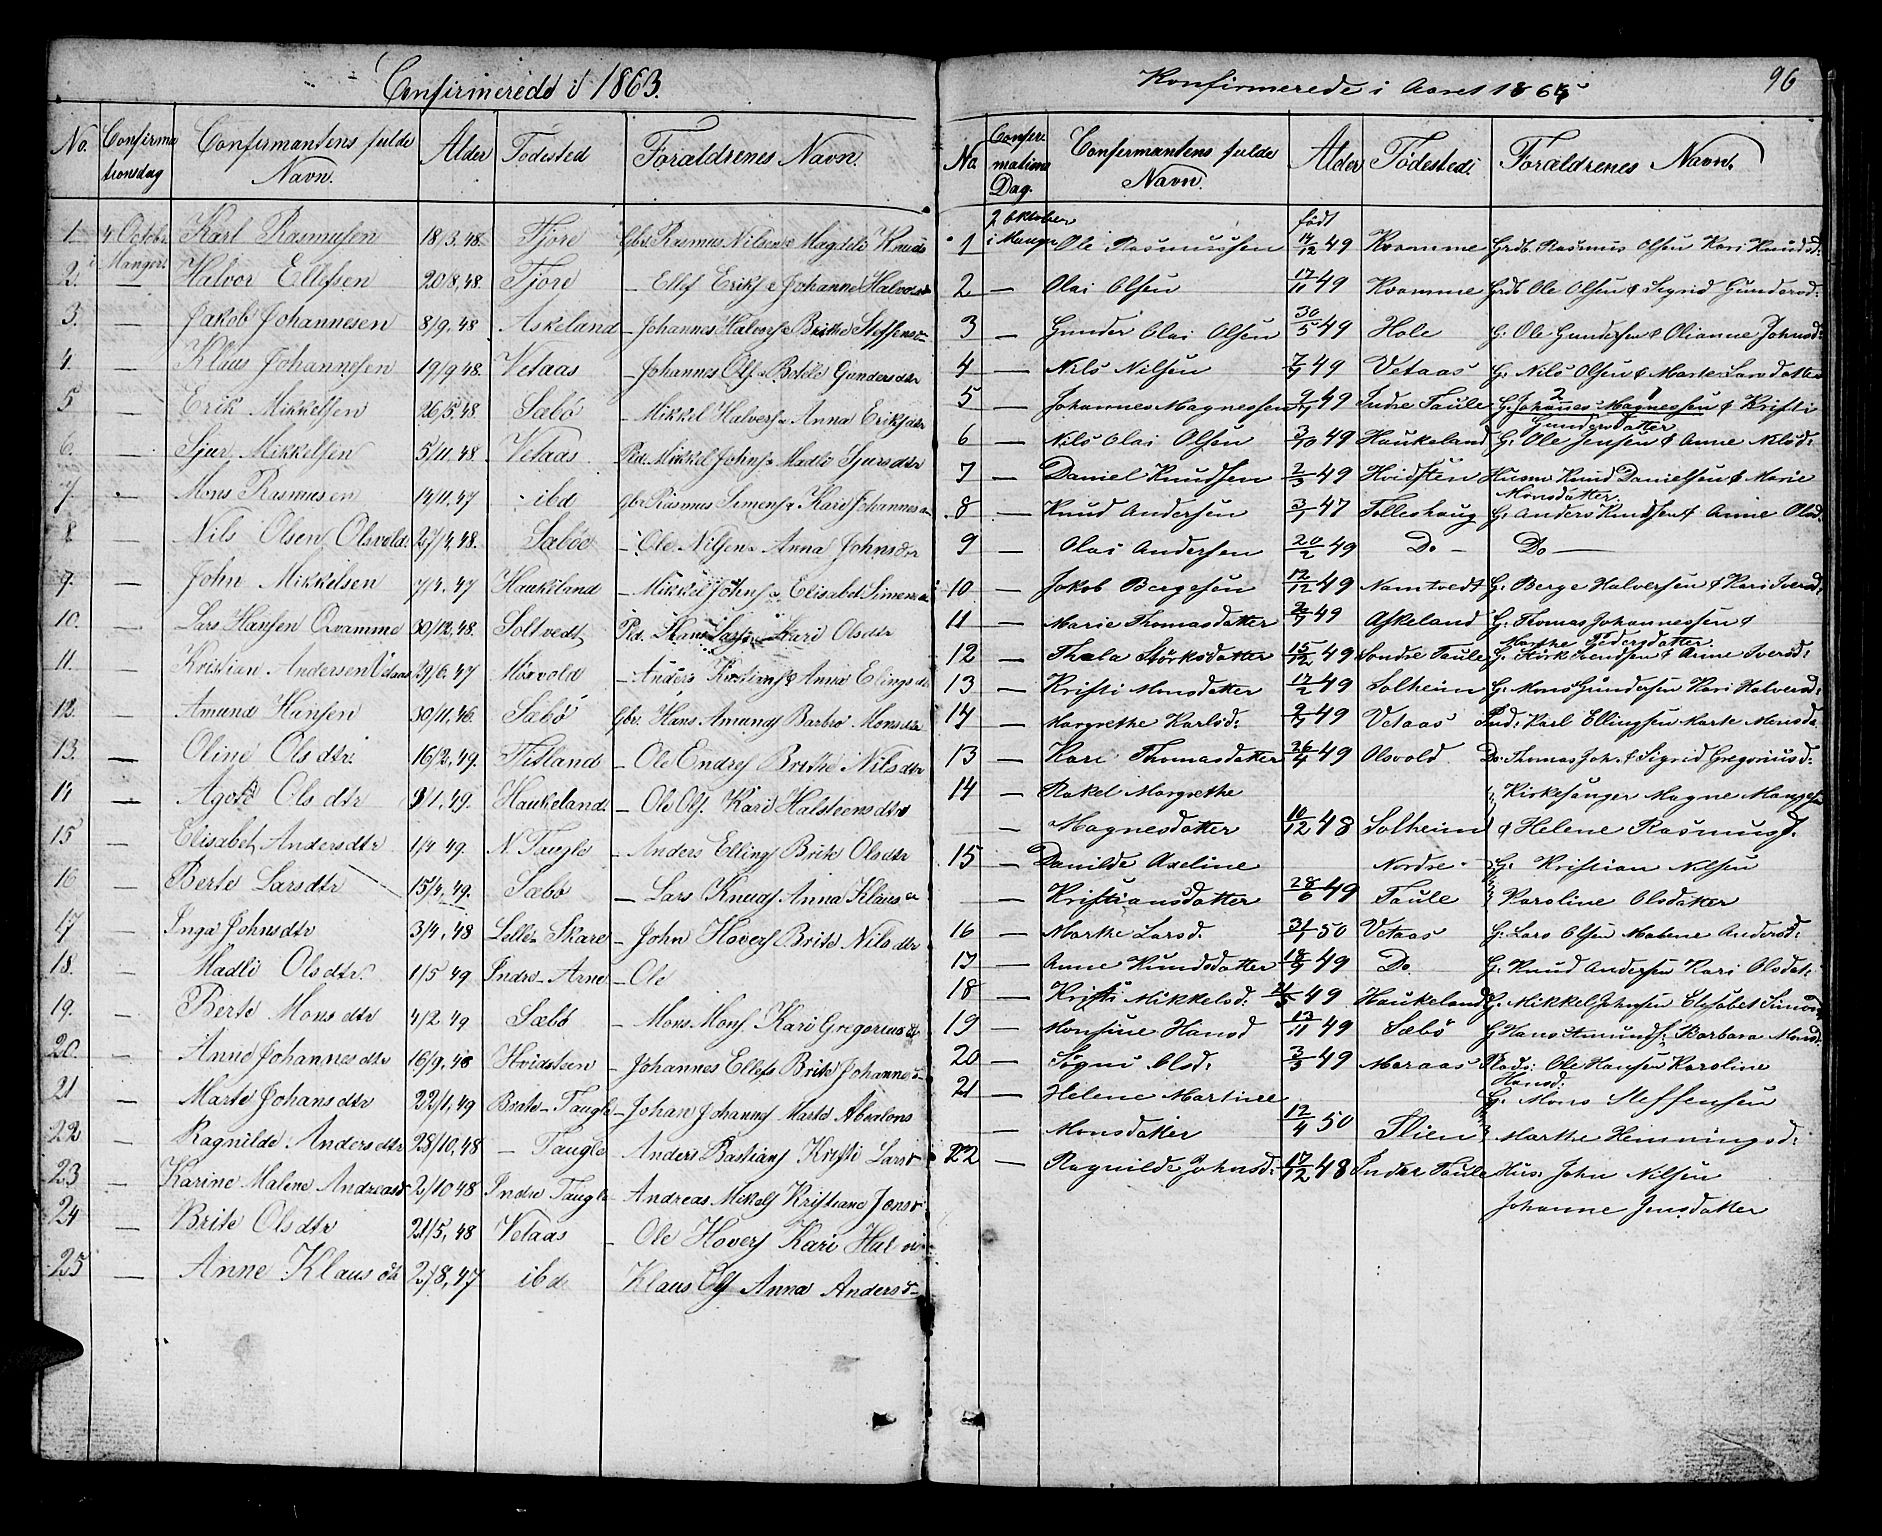 Confirmerede i 1863.
No. Confirmationsdag Confirmantens fulde Navn. Alder Födested Forældrenes Navn.
1. 4 Octobr i Manger Karl Rasmusen 18/3.48. Fjöre Gbr. Rasmus Nilsen Magdele Knuds
2. — Halvor Ellefsen 20/8.48. Fjöre — Ellef Eriks Johanne Halvors
3. — Jakob Johannesen 8/9.48 Askeland — Johannes Halvors Brithe Steffens
4. — Klaus Johannesen 19/9 48. Vetaas — Johannes Ols Gundersdtr
5 — Erik Mikkelsen 26/5.48. Sæbö — Mikkel Halvers Anna Eriksdtr
6. — Sjur Mikkelsen 5/11.48. Vetaas Mikkel Johns Madli Sjursdtr
7. — Mons Rasmusen 14/11.47 ibd Gbr Rasmus Simens Kari Johannes
8 — Nils Olsen Olsvold 27/4.48. Sæbö — Ole Nilsen Anna Johnsdtr
9. — John Mikkelsen 7/4.47 Haukeland — Mikkel Johns Elisabet Simens
10. — Lars Hansen Qvamme 30/12.48. Soltvedt Hans Lars Kari Olsdtr
11. — Kristian Andersen 29/6.47 — Anders Kristians Anna Elingsdtr
12. — Amund Hansen 30/11.46. Sæbö Gbr. Hans Amunds Barbro Mons
13. — Oline Olsdtr. 16/2.49. Titland — Ole Endres Brithe Nilsdtr
14 — Agote Olsdtr 9/1.49. Haukeland. — Ole Ols. Kari Halsteensdtr
15 — Elisabet Andersdtr 1/4 49. N. Taugle — Anders Ellings Brite Olsdtr
16 — Berte Larsdtr 15/4.49. Sæbö — Lars Knuds Anna Klaus
17 — Inga Johnsdtr 3/4.48 Lille Skare — John Hovers Brite Nilsdtr
18. — Madli Olsdtr. 1/5 49 Indre Arne — Ole
19. — Berte Monsdtr 4/2 49 Sæbö — Mons Mons Kari Gregorius
20. — Anne Johannesdtr 16/9.48 Hvidsteen — Johannes Ellefs Brite Johannes
21 — Marte Johansdtr 22/1.49 Taugle — Johan Johannes Marte Absalons
22 — Ragnilde Andersdtr 28/10.48 — Taugle Anders Bastians Kristi Lars
23 — Karine Malene Andreas 2/10 48 Indre Taugle Andreas Mikels Kristiane Jens
24 — Brite Olsdtr 21/5.48 Vetaas — Ole Hovers Kari Hal
25 — Anne Klausdtr 27/8.47 ibd Klaus Ols Anna Anders
Konfirmerede i Aaret 1864 96
No Confirmations Dag. Confirmantens fulde Navn. Alder Födested. Forældrenes Navn.
2 Oktober i Manger født
1 Ole Rasmussen 14/12 49 Kvamme Grdb. Rasmus Olsen Kari Knudsd:
2 — Olai Olsen 17/11 49 Kvamme Grdb Ole Olsen & Sigrid Gundersd:
3 — Gunder Olai Olsen 30/5 49 Hole G: Ole Gundersen & Olianne Johnsd:
4 — Nils Nilsen 7/9 49 Vetaas G. Nils Olsen & Marte Larsdatter
5 — Johannes Magnessen 49 Indre Taule G. Johannes Magnessen & Kristi Gundersdatter
6 — Nils Olai Olsen 3/10 49 Haukeland G: Ole Jensen & Anne Nilsd:
7 — Daniel Knudsen 2/3 49 Hvidsten Husm Knud Danielsen & Marie Monsdatter.
8 — Knud Andersen 47 Tolleshaug G. Anders Knudsen & Anne Olsd.
9 — Olai Andersen 20/2 49 Do — Do —
10 — Jakob Bergesen 12/12 49 Namtvedt G: Berge Halversen & Kari Iversd:
11 — Marie Thomasdatter 49 Askeland G: Thomas Johannessen & Marthe Pedersdatter.
12 — Thala Störksdatter 15/12 49 Söndre Taule G. Störk Knudsen & Anne Iversd:
13 — Kristi Monsdatter 17/2 49 Solheim G. Mons Gundersen Kari Halversd:
14 — Margrethe Karlsd: 49 Vetaas Ind: Karl Ellingsen Marte Monsda
13 — Kari Thomasdatter 26/4 49 Olsvold Do Thomas Joh. & Sigrid Gregoriusd:
14 — Rakel Margrethe Kirkesanger Magne
— Magnesdatter 10/12 48 Solheim & Helene Rasmusd.
15 — Danilde Axeline Nordre — G: Kristian Nilsen
— Kristiansdatter 28/6 49 Taule Karoline Olsdatter
16 — Marthe Larsd. 50 Vetaas G: Lars Olsen Malene Andersd:
17 — Anne Knudsdatter 18/9 49 Do G. Knud Andersen Kari Olsdat:
18 — Kristi Mikkelsd. 49 Haukeland G. Mikkel Johnsen Elisabet Simon
19 — Monsine Hansd 13/11 49 Sæbö G Hans Amunds: Barbara Monsd:
20 — Sögni Olsd: 3/3 49 Maraas Plads: Ole Hansen Karoline Hansd:
21 — Helene Martine G. Mons Steffensen
— Monsdatter 12/4 50 Flien Marthe Henningsd:
22 — Ragnilde Johnsd: 17/12 48 Inder Taule Hus: John Nilsen
Johanne Jensdatter